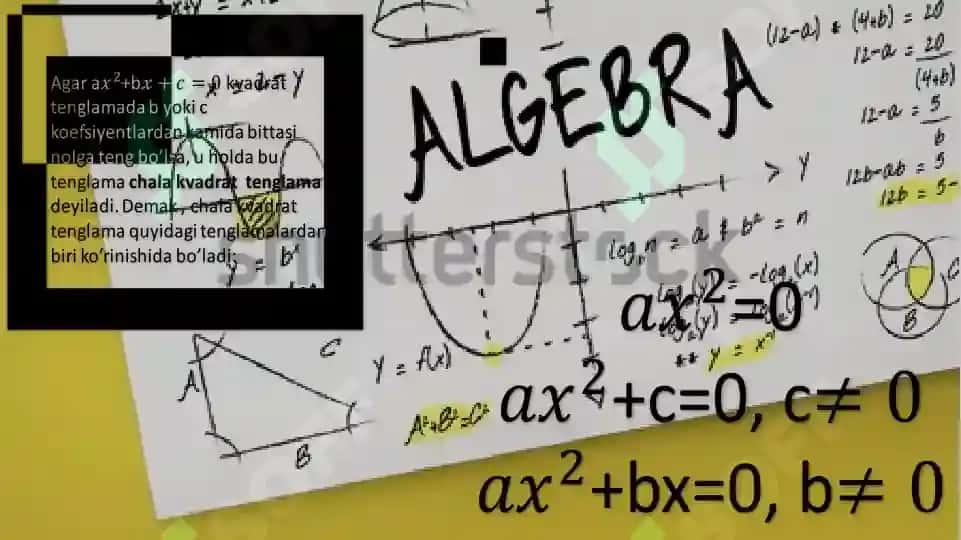 Agar ax²+bx + c = 0 kvadrat
tenglamada b yoki c
koefsiyentlardan kamida bittasi
nolga teng bo'lsa, u holda bu
tenglama chala kvadrat tenglama
deyiladi. Demak, chala kvadrat
tenglama quyidagi tenglamalardan
biri ko'rinishida bo'ladi:
y = bˣ
ALGEBRA
(12-a) * (4+b) = 20
12-a = 20
(4+b)
12-a = 5
b
12b-ab = 5
12b = 5-
Y
logₙn = a & b² = n
shutterstock
ax²=0
** y = x⁻¹
A
C
B
y = f(x)
A
C
B
A²+B²=C²
ax²+c=0, c≠ 0
ax²+bx=0, b≠ 0